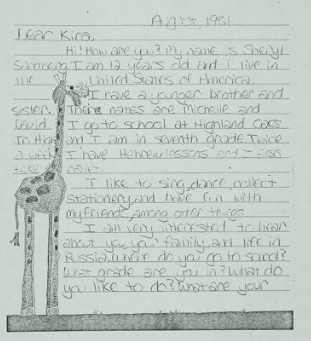 August, 1981
Dear Kira,
Hi! How are you? My name is Sheryl
I am 12 years old and I live in
the United States of America.
I have a younger brother and
sister. There names are Michelle and
David. I go to school at Highland Oaks
Jr. High and I am in seventh grade. Twice
a week I have Hebrew lessons and I also
take
I like to sing, dance, collect
stationery, and have fun with
my friends, among other things.
I am very interested to hear
about you, your family, and life in
Russia. Where do you go to school?
What grade are you in? What do
you like to do? What are your